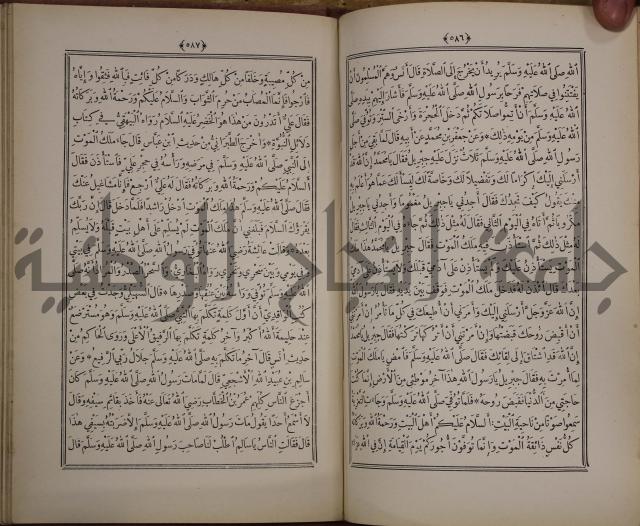 ﴿٥٨٦﴾
الله صلى الله عليه وسلم يريد أن يخرج إلى الصلاة قال أنس وهم المسلمون أن
يفتتنوا في صلاتهم فرحا برسول الله صلى الله عليه وسلم فأشار إليهم بيده صلى
الله عليه وسلم أن أتموا صلاتكم ثم دخل الحجرة وأرخى الستر وتوفي صلى
الله عليه وسلم من يومه ذلك * وعن جعفر بن محمد عن أبيه قال لما بقي من أجل
رسول الله صلى الله عليه وسلم ثلاث نزل عليه جبريل فقال يا محمد إن الله قد
أرسلني إليك إكراما لك وتفضيلا لك وخاصة لك ليسألك عما هو أعلم به
منك يقول كيف تجدك فقال أجدني يا جبريل مغموما وأجدني يا جبريل
مكروبا ثم أتاه في اليوم الثاني فقال له مثل ذلك ثم جاءه في اليوم الثالث فقال
له مثل ذلك ثم استأذن فيه ملك الموت فقال جبريل يا محمد هذا ملك
الموت يستأذن عليك ولم يستأذن على آدمي قبلك ولا يستأذن على آدمي
بعدك قال ائذن له فدخل ملك الموت فوقف بين يديه فقال يا رسول الله
إن الله عز وجل أرسلني إليك وأمرني أن أطيعك في كل ما تأمر إن أمرتني
أن أقبض روحك قبضتها وإن أمرتني أن أتركها تركتها فقال جبريل يا محمد
إن الله قد اشتاق إلى لقائك فقال صلى الله عليه وسلم فامض يا ملك الموت
لما أمرت به فقال جبريل يا رسول الله هذا آخر موطئي من الأرض إنما كنت
حاجتي من الدنيا فقبض روحه * فلما توفي صلى الله عليه وسلم وجاءت التعزية
سمعوا صوتا من ناحية البيت السلام عليكم أهل البيت ورحمة الله وبركاته
كل نفس ذائقة الموت وإنما توفون أجوركم يوم القيامة إن في الله عزاء
﴿٥٨٧﴾
من كل مصيبة وخلفا من كل هالك ودركا من كل فائت فبالله فثقوا وإياه
فارجوا فإنما المصاب من حرم الثواب والسلام عليكم ورحمة الله وبركاته
فقال علي أتدرون من هذا هو الخضر عليه السلام رواه البيهقي في كتاب
دلائل النبوة * وأخرج الطبراني من حديث ابن عباس قال جاء ملك الموت
إلى النبي صلى الله عليه وسلم في مرضه ورأسه في حجر علي فاستأذن فقال
السلام عليكم ورحمة الله وبركاته فقال له علي ارجع فإنا مشاغيل عنك
فقال صلى الله عليه وسلم هذا ملك الموت ادخل راشدا فلما دخل قال إن ربك
يقرئك السلام فبلغني أن ملك الموت لم يسلم على أهل بيت قبله ولا يسلم
بعده * قالت عائشة رضي الله عنها توفي رسول الله صلى الله عليه وسلم في بيتي
وفي يومي وبين سحري ونحري
صلى الله عليه وسلم توفي ورأسه بين عنقها وصدرها * قال السهيلي وجدت في بعض
كتب الواقدي أن أول كلمة تكلم بها النبي صلى الله عليه وسلم وهو مسترضع
عند حليمة الله أكبر وآخر كلمة تكلم بها الرفيق الأعلى وروى الحاكم من
حديث أنس قال آخر ما تكلم به صلى الله عليه وسلم جلال ربي الرفيع * وعن
سالم بن عبيد الله الأشجعي قال لما مات رسول الله صلى الله عليه وسلم كان
أجزع الناس كلهم عمر بن الخطاب رضي الله تعالى عنه فأخذ بقائم سيفه وقال
لا أسمع أحدا يقول مات رسول الله صلى الله عليه وسلم إلا ضربته بسيفي هذا
قال فقالت الناس يا سالم اطلب لنا صاحب رسول الله صلى الله عليه وسلم قال
جامعة النجاح الوطنية